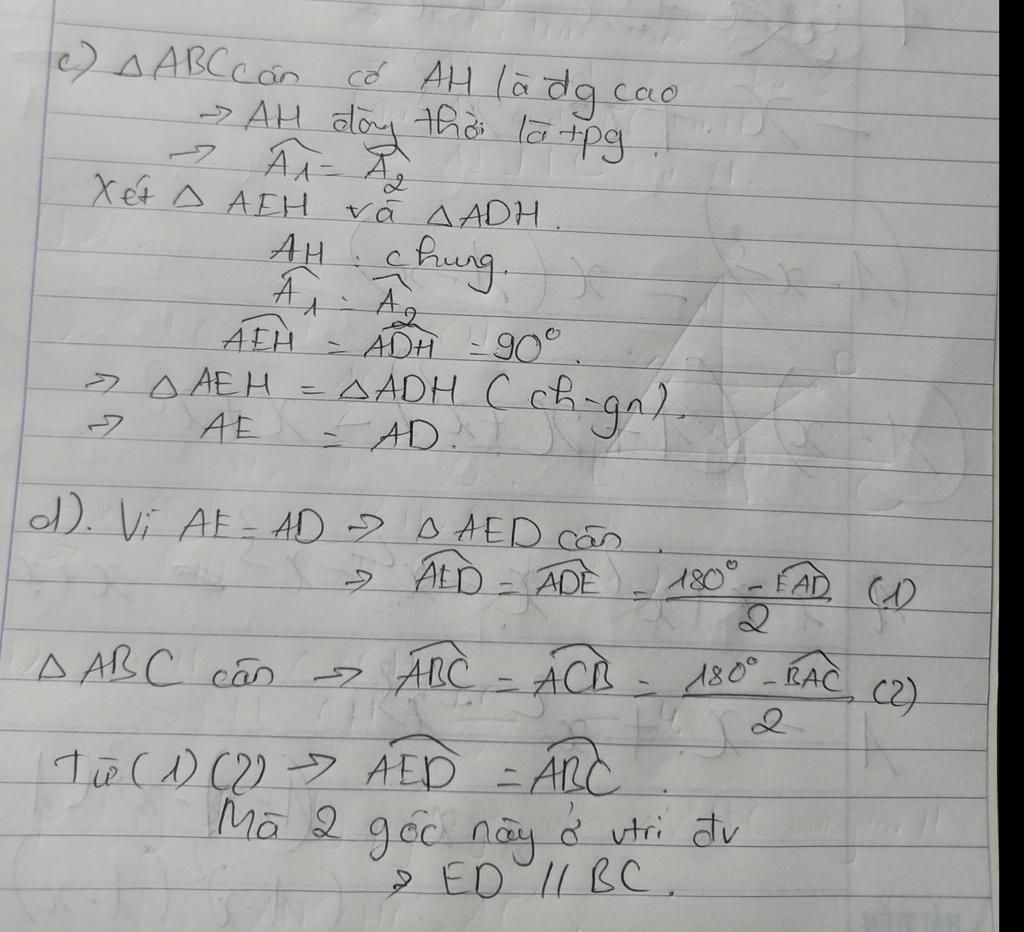 c) △ABC cân có AH là đg cao
→ AH đồng thời là tpg.
→ Â₁ = Â₂
Xét △ AEH và △ADH.
AH : chung.
Â₁ = Â₂
\widehat{AEH} = \widehat{ADH} = 90°.
⇒ △ AEH = △ADH (ch-gn).
⇒ AE = AD.
d). Vì AE = AD → △ AED cân.
⇒ \widehat{AED} = \widehat{ADE} = \frac{180° - \widehat{EAD}}{2} (1)
△ ABC cân → \widehat{ABC} = \widehat{ACB} = \frac{180° - \widehat{BAC}}{2} (2)
Từ (1) (2) → \widehat{AED} = \widehat{ABC}.
Mà 2 góc này ở vtri đv
⇒ ED // BC.